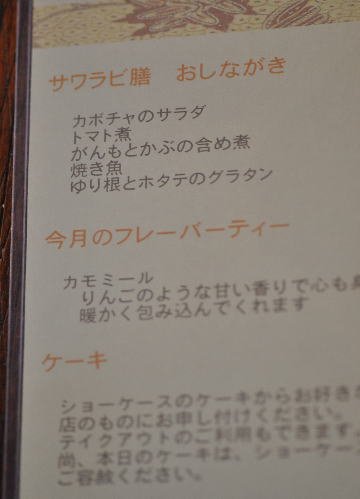 サワラビ膳 おしながき
カボチャのサラダ
トマト煮
がんもとかぶの含め煮
焼き魚
ゆり根とホタテのグラタン
今月のフレーバーティー
カモミール
りんごのような甘い香りで心も
暖かく包み込んでくれます
ケーキ
ショーケースのケーキからお好き
店のものにお申し付けください。
テイクアウトのご利用もできます。
尚、本日のケーキは、ショーケー
ご容赦ください。